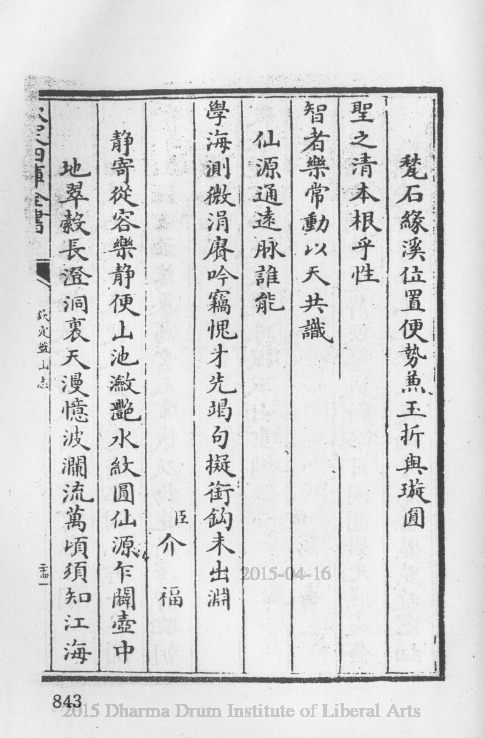 甃石緣溪位置便勢兼玉折與璇圓
聖之清本根乎性
智者樂常動以天共識
仙源通遠脉誰能
學海測微涓賡吟竊愧才先竭句擬銜鈎未出淵
臣介福
静寄從容樂静便山池瀲灧水紋圓仙源乍闢壺中
地翠縠長澄洞裏天漫憶波瀾流萬頃須知江海
欽定四庫全書
欽定盤山志
2015-04-16
843
2015 Dharma Drum Institute of Liberal Arts